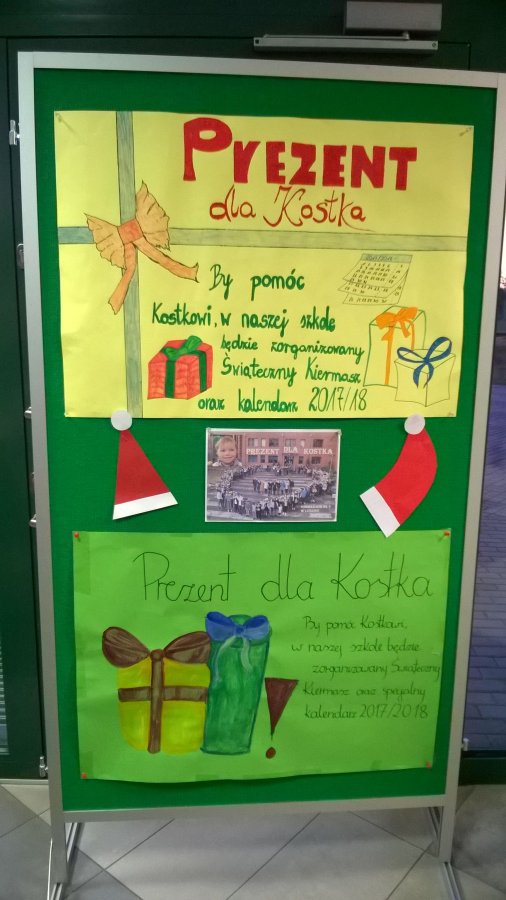 PREZENT
dla Kostka
By pomóc
Kostkowi, w naszej szkole
będzie zorganizowany
Świąteczny Kiermasz
oraz kalendarz 2017/18
PREZENT DLA KOSTKA
Prezent dla Kostka
By pomóc Kostkowi,
w naszej szkole będzie
zorganizowany Świąteczny
Kiermasz oraz specjalny
kalendarz 2017/2018